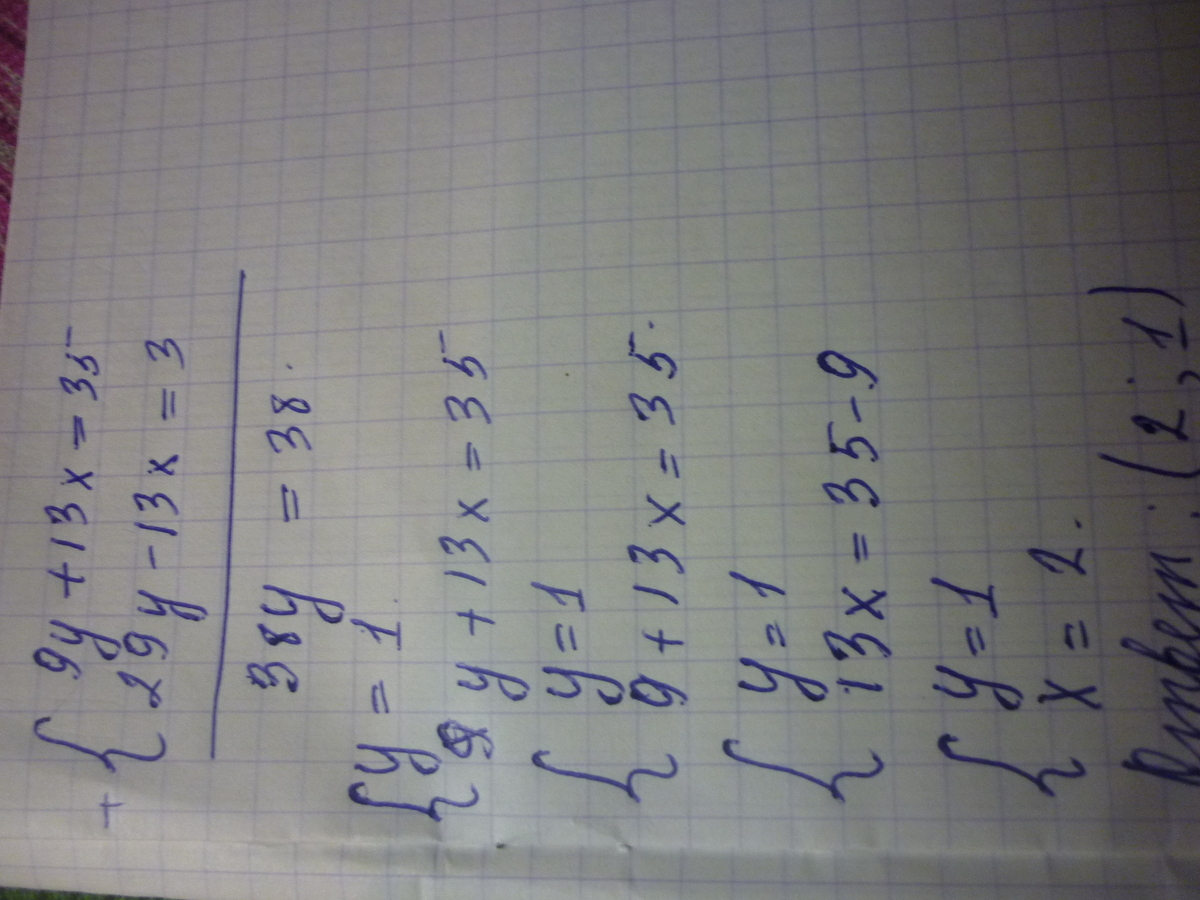 + { 9y + 13x = 35
29y - 13x = 3
38y = 38.
{ y = 1.
9y + 13x = 35
{ y = 1
9 + 13x = 35.
{ y = 1
13x = 35 - 9
{ y = 1
x = 2.
Ответ: (2; 1)